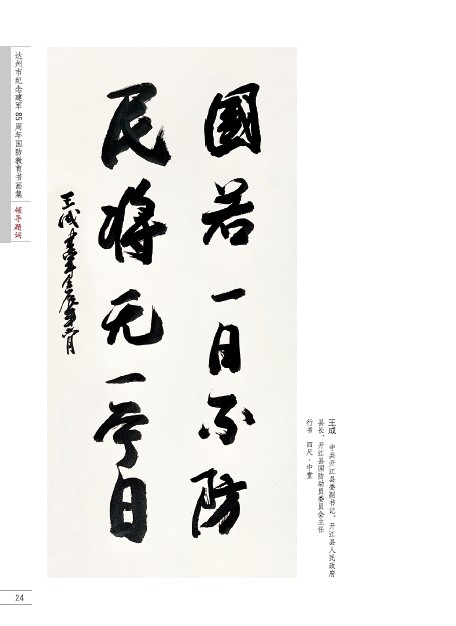 达州市纪念建军85周年国防教育书画集
领导题词
國若一日不防
民将无一宁日
王成
王成 中共开江县委副书记、开江县人民政府
县长、开江县国防动员委员会主任
行书 四尺·中堂
24